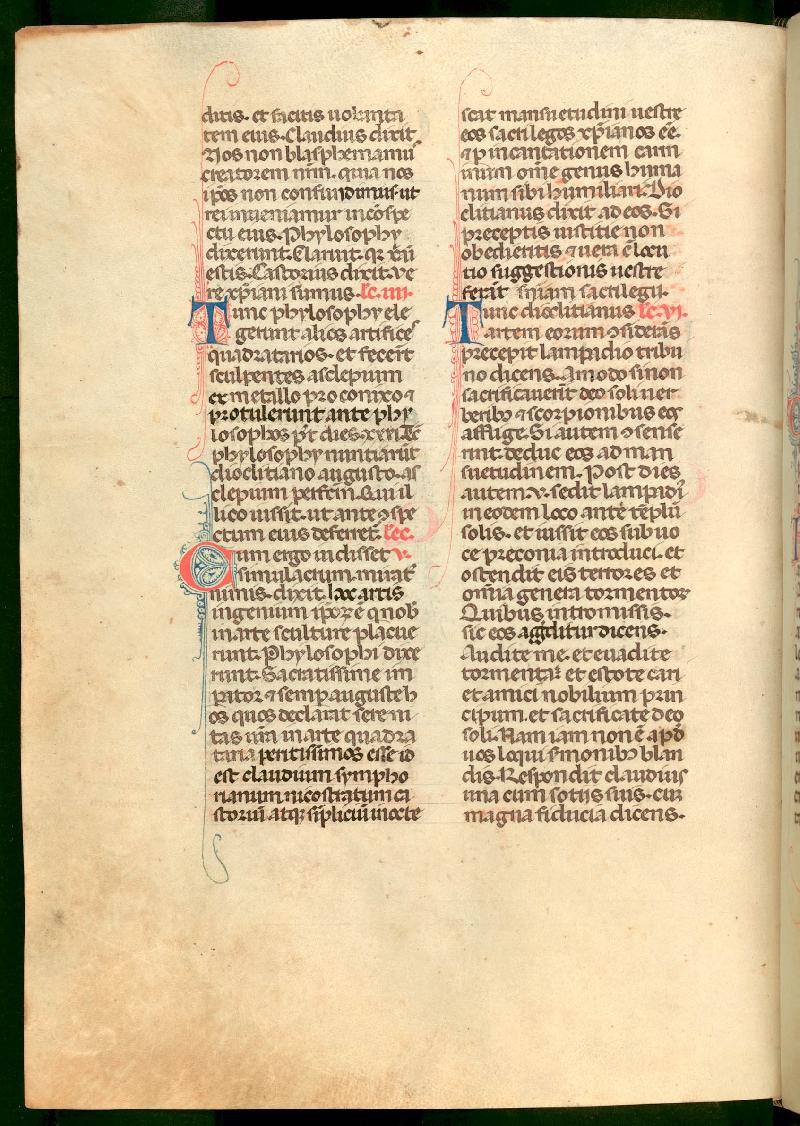 ditis. et facitis uolunta
tem eius. Claudius dixit
Nos non blasphemamu᷒
creatorem nr̄m. quia nos
ip̄os non confundimus. ut
rei inueniamur in ꝯspe
ctu eius. Phylosophy
dixerunt. Claruit. qr xp̄ani
estis. Castorius dixit. Ve
re xp̄iani sumus. lc̄. iiii.
Tunc phylosophy ele
gerunt alios artifices
quadratarios. et fecer̄t
sculpentes asclepium
ex metallo proconixo ⁊
protulerunt ante phy
losophos p̄t dies. xxxi. Tc̄
phylosophy nuntiarūt
dioclitiano augusto. as
clepium perfectū. Qui il
lico iussit. ut ante ꝯspe
ctum eius deferret᷒. lec.
Cum ergo uidisset v.
simulacrum. mirat᷒
nimis. dixit. hax artis
ingenium ip̄oꝝ ē. q̄ nob̄
in arte sculture placue
runt. Phylosophi dixe
runt. Sacratissime im
ꝑator ⁊ semꝑ auguste. h
os quos declarat sereni
tas ur̄a in arte quadra
taria peritissimos esse id
est claudium sympho
rianum nicostratum ca
storiū atqꝫ sīpliciū inocte
scat mansuetudini uestre
eos sacrilegos xp̄ianos eē.
⁊ ꝑ incantationem carmi
inum om̄e genus huma
num sibi humiliari. Dio
clitianus dixit ad eos. Si
preceptis iustitie non
obedientis ⁊ uera ē locu
tio suggestionis uestre
ferāt sn̄iam sacrilegii.
Tunc dioclitianus lc̄. vi.
artem eorum ꝯsiderās
precepit lampadio tribu
no dicens. Amodo si non
sacrificauerīt deo soli uer
beribꝫ ⁊ scorpionibus eos
afflige. Si autem ꝯsense
rint. deduc eos ad man
suetudinem. Post dies
autem. v. sedit lampadi᷒
in eodem loco ante tēplū
solis. et iussit eos sub uo
ce preconia introduci. et
ostendit eis terrores et
om̄ia genera tormentoꝝ
Quibus intromissis.
sic eos aggditur dicens.
Audite me. et euadite
tormenta. et estote cari
et amici nobilium prin
cipum. et sacrificate deo
soli. Nam iam non ē apd̄
uos loqui s̄monibꝫ blan
dis. Respondit claudius
una cum sotiis suis. cū
magna fiducia dicens.